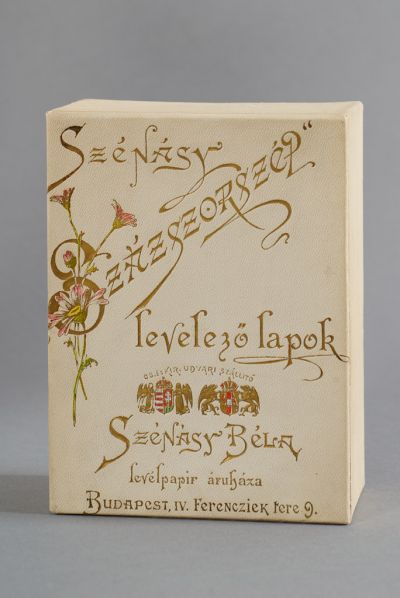 Szénásy
Százszorszép"
levelező lapok
CS. ÉS KIR. UDVARI SZÁLLITÓ
Szénásy Béla
levélpapir áruháza
Budapest, IV. Ferencziek tere 9.